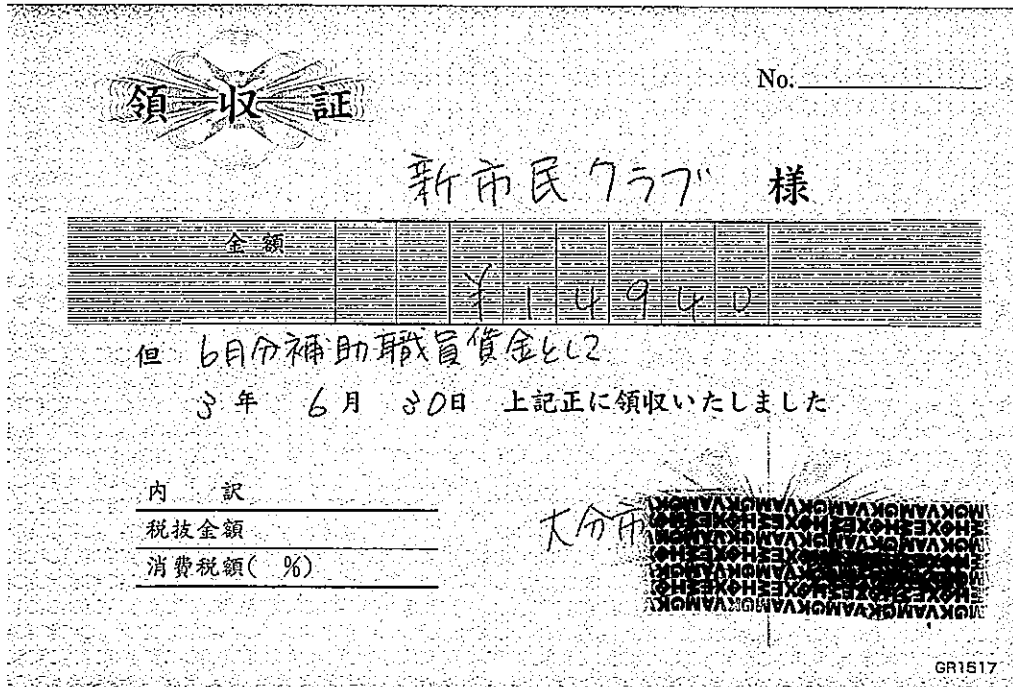 領収証
No.
新市民クラブ 様
金額 ¥14940
但 6月分補助職員賃金として
3年 6月 30日 上記正に領収いたしました
内 訳
税抜金額
消費税額( %)
大分市
GR1517